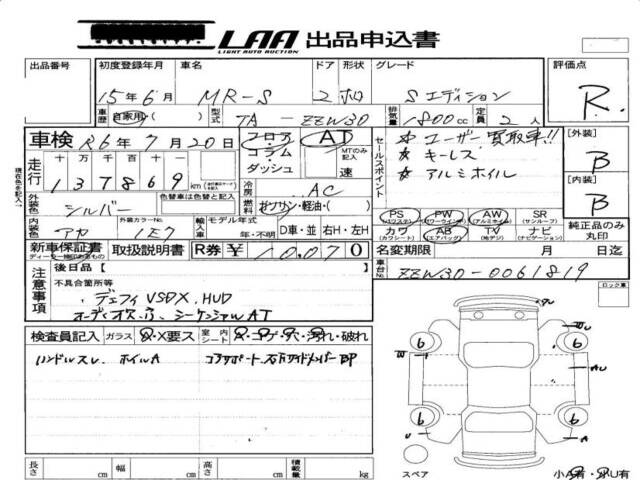 LAA 出品申込書
LIGHT AUTO AUCTION
出品番号 初度登録年月 車名 ドア 形状 グレード 評価点
15年6月 MR-S 2 ホロ Sエディション R
車歴 自家用・( ) 型式 TA-ZZW30 排気量 1800cc 定員 2人
車検 R6年7月20日 フロア コラム ダッシュ AT MTのみ記入 速
セールスポイント ☆ユーザー買取車!!
☆キーレス
☆アルミホイル
[外装] B
[内装] B
現在色を記入
走行 十 万 千 百 十 一
137869km
冷房 AC
外装色 シルバー 色替車は色替と記入 燃料 ガソリン・軽油・( )
内装色 アカ 外装カラーNo. 1E7 輸入車 モデル年式 年・不明 D車・並 右H・左H
PS (パワステ) PW (パワーウィンドウ) AW (アルミホイル) SR (サンルーフ)
カワ (カワシート) AB (エアバッグ) TV (地デジ) ナビ (ナビゲーション)
純正品のみ丸印
新車保証書 取扱説明書 R券 ¥10,070 名変期限 月 日迄
注意事項 後日品【 】 車台No. ZZW30-0061819
不具合箇所等
デフィVSDX、HUD
シーケンシャルAT
ロック車
検査員記入 ガラス X・X要ス 室内 シート スレ・コゲ・穴・汚れ・破れ
ハンドルスレ ホイルA コアサポート、左右サイドメンバーBP
W U 6 6 W AU
6 6 U A
スペア 小A有・小U有
長さ cm 幅 cm 高さ cm 積載量 kg